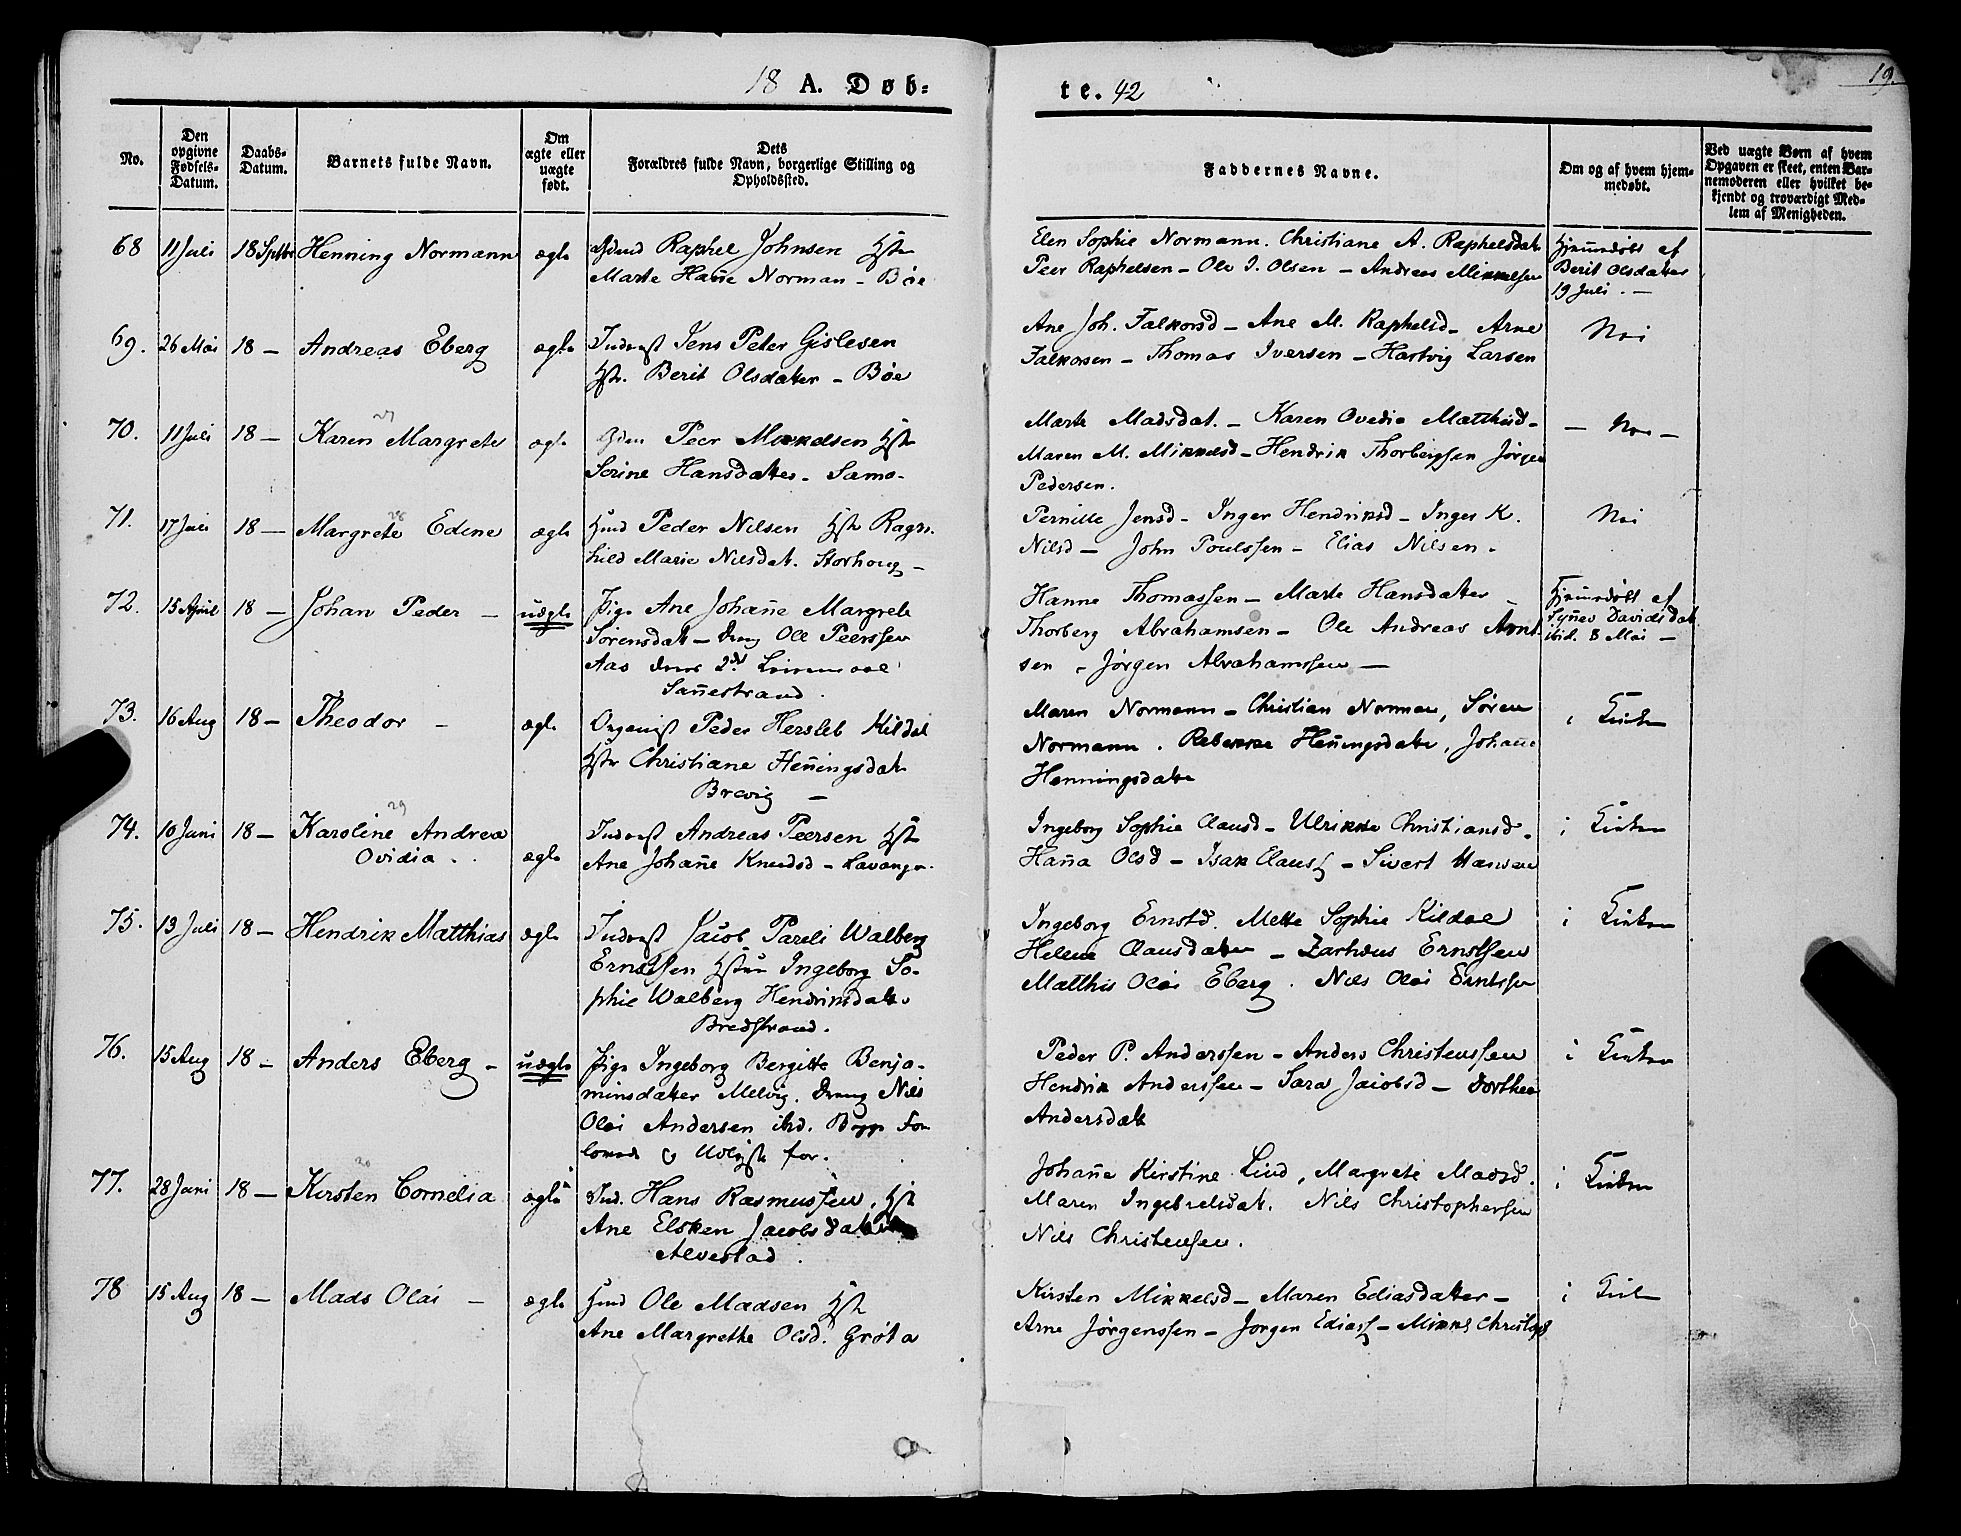 18 A. Døb-
te. 42
19.
No.
Den opgivne Fødsels-Datum.
Daabs-Datum.
Barnets fulde Navn.
Om ægte eller uægte født.
Dets Forældres fulde Navn, borgerlige Stilling og Opholdssted.
Faddernes Navne.
Om og af hvem hjem-medøbt.
Ved uægte Børn af hvem Opgaven er skeet, enten Bar-nemoderen eller hvilket be-kjendt og troværdigt Med-lem af Menigheden.
68 11 Juli 18 Septbr Henning Normann ægte Raphel Johnsen Hst
Marte Hañe Norman - Bøe
Elen Sophie Normann. Christiane A. Raphelsdatr
Peer Raphelsen - Ole J. Olsen - Andreas Mikkelsen
Hjemmedøbt af
Berit Olsdatter
19 Juli. -
69. 26 Mai 18 - Andreas Eberg ægte Inderst Jens Peter Gislesen
Hst. Berit Olsdatter - Bøe
Ane Joh. Falkorsd - Ane M. Raphelsd - Arne
Falkorsen - Thomas Iversen - Hartvig Larsen
Nei
70. 11 Juli 18 - Karen Margrete 27 ægte Peer Mikkelsen Hst
Serine Hansdatter - Samo -
Marte Madsdat. - Karen Ovedia Matthisd -
Maren M. Mikkelsd - Hendrik Thorbergsen Jørgen
Pedersen.
- Nei -
71. 17 Juli 18 - Margrete Edine 28 ægte Hmd Peder Nilsen Hst Ragn-
hild Marie Nilsdat. Storhoug -
Pernille Jensd - Inger Hendriksd - Inger K.
Nilsd - John Poulssen - Elias Nilsen -
Nei
72. 15 April 18 - Johan Peder - uægte Pige Ane Johañe Margrete
Sørensdat - Dreng Ole Peerssen
Aas deres 2det
Sañestrand.
Hanne Thomassen - Marte Hansdatter -
Thorberg Abrahamsen - Ole Andreas Arnt-
sen - Jørgen Abrahamssen -
Hjemmedøbt af
Syñev Davidsdat
ibid. 8 Mai -
73. 16 Aug 18 - Theodor - ægte Organist Peder Hersleb Kildal
Hst Christiane Heñingsdatr
Brevig -
Maren Normann - Christian Norman, Søren
Normann. Rebekke Heñingsdatr, Johañe
Henningsdatr
i Kirken
74. 10 Juni 18 - Karoline Andrea 29
Ovidia. ægte Inderst Andreas Peersen Hst
Ane Johañe Knudsd - Lavange.
Ingeborg Sophie Clausd - Ulrikke Christiansd -
Haña Olsd - Isak Clausen - Sivert Hansen
i Kirken
75. 13 Juli 18 - Hendrik Matthias ægte Inderst Jacob Pareli Walberg
Ernstsen Hstru Ingeborg So-
phie Walberg Hendriksdatr
Bredstrand.
Ingeborg Ernstd. Mette Sophie Kildal
Helene Clausdatter - Zarhæus Ernstsen
Matthis Olai Eberg. Nils Olai Erntsen
i Kirken
76. 15 Aug 18 - Anders Eberg - uægte Pige Ingeborg Bergitte Benja-
minsdatter Melvig. Dreng Nils
Olai Andersen ibid. Begges For
Peder P. Anderssen - Anders Christenssen
Hendrik Anderssen - Sara Jacobsd - Dorthea
Andersdatr
i Kirken
77. 28 Juni 18 - Kirsten Cornelia ægte Ind. Hans Rasmussen, Hst
Ane Elsken Jacobsdatter
Alvestad.
Johañe Kirstine Lind, Margrete Madsd.
Maren Ingebretsdat. Nils Christophersen
Nils Christensen.
i Kirken
78 15 Aug 18 - Mads Olai - ægte Hmd Ole Madsen Hst
Ane Margrethe Olsd. Grøta
Kirsten Mikkelsd - Maren Ediasdatter -
Arne Jørgenssen - Jørgen Ediass - Mikkel Christoph
i Kirken